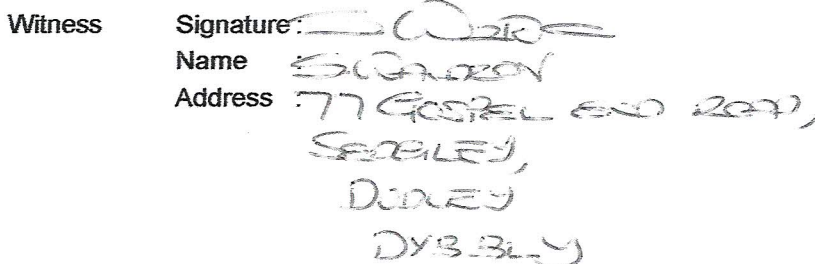 Witness Signature:
Name : S WALDRON
Address : 77 GOSPEL END ROAD,
SEDGLEY,
DUDLEY